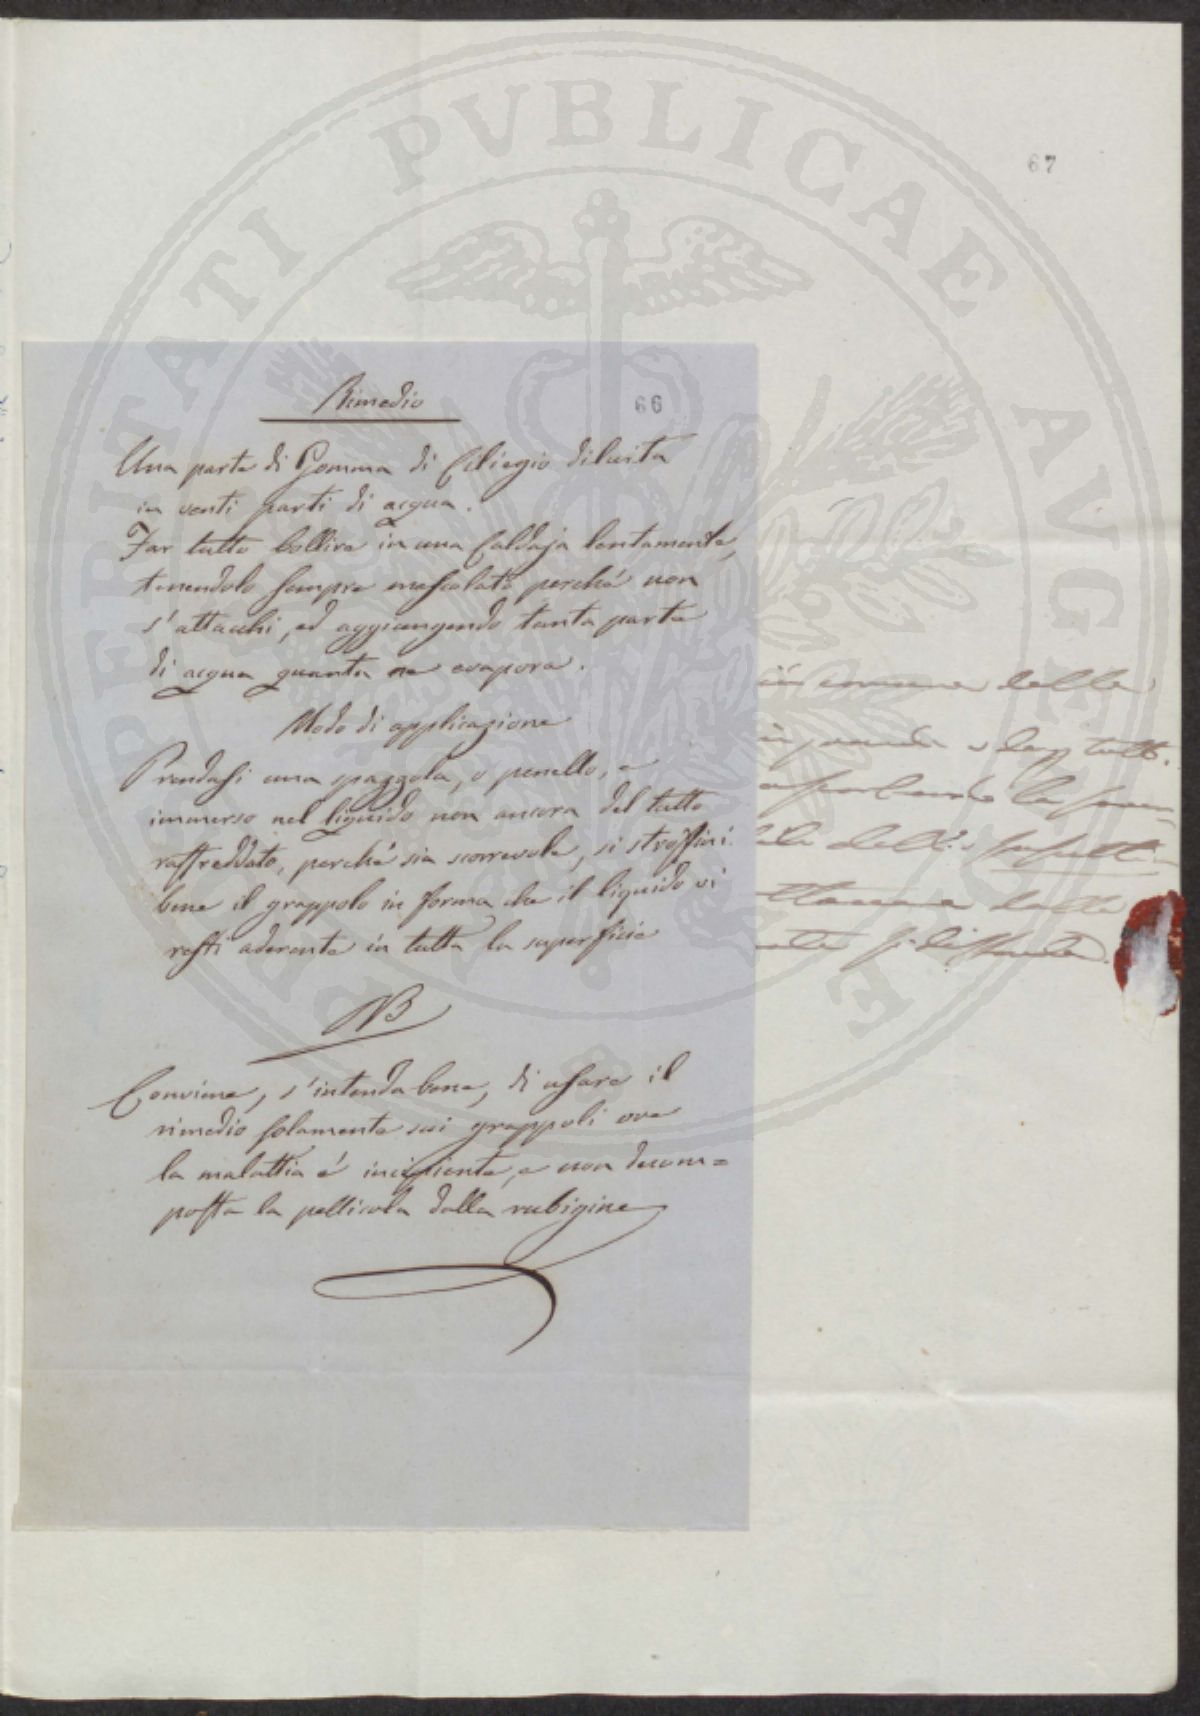 PROSPERITATI PVBLICAE AVGENDAE
67
Rimedio
66
Una parte di Gomma di Ciliegio diluita
in venti parti di acqua.
Far tutto bollire in una Caldaja lentamente,
tenendolo sempre mescolato perché non
s'attacchi, ed aggiungendo tanta parte
di acqua quanta ne evapora.
Modo di applicazione
Prendasi una spazzola, o penello, e
immerso nel liquido non ancora del tutto
raffreddato, perché sia scorrevole, si stroffini
bene il grappolo in forma che il liquido vi
resti aderente in tutta la superficie
NB
Conviene, s'intenda bene, di usare il
rimedio solamente sui grappoli ove
la malattia é incipiente, e non decom=
posta la pellicola dalla rubigine
delle
tutt
la
dell'
dalle